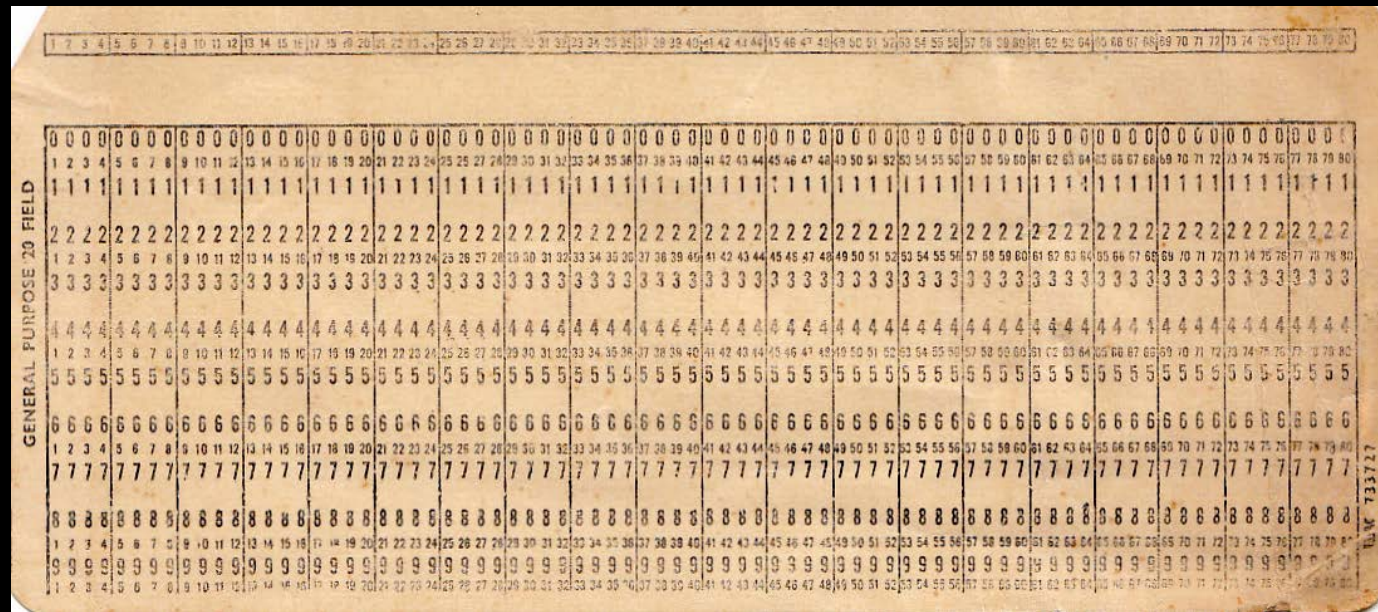 GENERAL PURPOSE 20 FIELD
1 2 3 4 5 6 7 8 9 10 11 12 13 14 15 16 17 18 19 20 21 22 23 24 25 26 27 28 29 30 31 32 33 34 35 36 37 38 39 40 41 42 43 44 45 46 47 48 49 50 51 52 53 54 55 56 57 58 59 60 61 62 63 64 65 66 67 68 69 70 71 72 73 74 75 76 77 78 79 80
0 0 0 0 0 0 0 0 0 0 0 0 0 0 0 0 0 0 0 0 0 0 0 0 0 0 0 0 0 0 0 0 0 0 0 0 0 0 0 0 0 0 0 0 0 0 0 0 0 0 0 0 0 0 0 0 0 0 0 0 0 0 0 0 0 0 0 0 0 0 0 0 0 0 0 0 0 0 0 0
1 2 3 4 5 6 7 8 9 10 11 12 13 14 15 16 17 18 19 20 21 22 23 24 25 26 27 28 29 30 31 32 33 34 35 36 37 38 39 40 41 42 43 44 45 46 47 48 49 50 51 52 53 54 55 56 57 58 59 60 61 62 63 64 65 66 67 68 69 70 71 72 73 74 75 76 77 78 79 80
1 1 1 1 1 1 1 1 1 1 1 1 1 1 1 1 1 1 1 1 1 1 1 1 1 1 1 1 1 1 1 1 1 1 1 1 1 1 1 1 1 1 1 1 1 1 1 1 1 1 1 1 1 1 1 1 1 1 1 1 1 1 1 1 1 1 1 1 1 1 1 1 1 1 1 1 1 1 1 1
2 2 2 2 2 2 2 2 2 2 2 2 2 2 2 2 2 2 2 2 2 2 2 2 2 2 2 2 2 2 2 2 2 2 2 2 2 2 2 2 2 2 2 2 2 2 2 2 2 2 2 2 2 2 2 2 2 2 2 2 2 2 2 2 2 2 2 2 2 2 2 2 2 2 2 2 2 2 2 2
1 2 3 4 5 6 7 8 9 10 11 12 13 14 15 16 17 18 19 20 21 22 23 24 25 26 27 28 29 30 31 32 33 34 35 36 37 38 39 40 41 42 43 44 45 46 47 48 49 50 51 52 53 54 55 56 57 58 59 60 61 62 63 64 65 66 67 68 69 70 71 72 73 74 75 76 77 78 79 80
3 3 3 3 3 3 3 3 3 3 3 3 3 3 3 3 3 3 3 3 3 3 3 3 3 3 3 3 3 3 3 3 3 3 3 3 3 3 3 3 3 3 3 3 3 3 3 3 3 3 3 3 3 3 3 3 3 3 3 3 3 3 3 3 3 3 3 3 3 3 3 3 3 3 3 3 3 3 3 3
4 4 4 4 4 4 4 4 4 4 4 4 4 4 4 4 4 4 4 4 4 4 4 4 4 4 4 4 4 4 4 4 4 4 4 4 4 4 4 4 4 4 4 4 4 4 4 4 4 4 4 4 4 4 4 4 4 4 4 4 4 4 4 4 4 4 4 4 4 4 4 4 4 4 4 4 4 4 4 4
1 2 3 4 5 6 7 8 9 10 11 12 13 14 15 16 17 18 19 20 21 22 23 24 25 26 27 28 29 30 31 32 33 34 35 36 37 38 39 40 41 42 43 44 45 46 47 48 49 50 51 52 53 54 55 56 57 58 59 60 61 62 63 64 65 66 67 68 69 70 71 72 73 74 75 76 77 78 79 80
5 5 5 5 5 5 5 5 5 5 5 5 5 5 5 5 5 5 5 5 5 5 5 5 5 5 5 5 5 5 5 5 5 5 5 5 5 5 5 5 5 5 5 5 5 5 5 5 5 5 5 5 5 5 5 5 5 5 5 5 5 5 5 5 5 5 5 5 5 5 5 5 5 5 5 5 5 5 5 5
6 6 6 6 6 6 6 6 6 6 6 6 6 6 6 6 6 6 6 6 6 6 6 6 6 6 6 6 6 6 6 6 6 6 6 6 6 6 6 6 6 6 6 6 6 6 6 6 6 6 6 6 6 6 6 6 6 6 6 6 6 6 6 6 6 6 6 6 6 6 6 6 6 6 6 6 6 6 6 6
1 2 3 4 5 6 7 8 9 10 11 12 13 14 15 16 17 18 19 20 21 22 23 24 25 26 27 28 29 30 31 32 33 34 35 36 37 38 39 40 41 42 43 44 45 46 47 48 49 50 51 52 53 54 55 56 57 58 59 60 61 62 63 64 65 66 67 68 69 70 71 72 73 74 75 76 77 78 79 80
7 7 7 7 7 7 7 7 7 7 7 7 7 7 7 7 7 7 7 7 7 7 7 7 7 7 7 7 7 7 7 7 7 7 7 7 7 7 7 7 7 7 7 7 7 7 7 7 7 7 7 7 7 7 7 7 7 7 7 7 7 7 7 7 7 7 7 7 7 7 7 7 7 7 7 7 7 7 7 7
8 8 8 8 8 8 8 8 8 8 8 8 8 8 8 8 8 8 8 8 8 8 8 8 8 8 8 8 8 8 8 8 8 8 8 8 8 8 8 8 8 8 8 8 8 8 8 8 8 8 8 8 8 8 8 8 8 8 8 8 8 8 8 8 8 8 8 8 8 8 8 8 8 8 8 8 8 8 8 8
1 2 3 4 5 6 7 8 9 10 11 12 13 14 15 16 17 18 19 20 21 22 23 24 25 26 27 28 29 30 31 32 33 34 35 36 37 38 39 40 41 42 43 44 45 46 47 48 49 50 51 52 53 54 55 56 57 58 59 60 61 62 63 64 65 66 67 68 69 70 71 72 73 74 75 76 77 78 79 80
9 9 9 9 9 9 9 9 9 9 9 9 9 9 9 9 9 9 9 9 9 9 9 9 9 9 9 9 9 9 9 9 9 9 9 9 9 9 9 9 9 9 9 9 9 9 9 9 9 9 9 9 9 9 9 9 9 9 9 9 9 9 9 9 9 9 9 9 9 9 9 9 9 9 9 9 9 9 9 9
1 2 3 4 5 6 7 8 9 10 11 12 13 14 15 16 17 18 19 20 21 22 23 24 25 26 27 28 29 30 31 32 33 34 35 36 37 38 39 40 41 42 43 44 45 46 47 48 49 50 51 52 53 54 55 56 57 58 59 60 61 62 63 64 65 66 67 68 69 70 71 72 73 74 75 76 77 78 79 80
733727